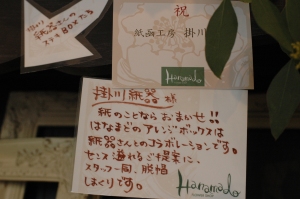 紙器さんの
ステキBOXたち
祝
紙函工房 掛川
Hanamado
掛川紙器 様
紙のことならおまかせ!!
はなまどのアレンジボックスは
紙器さんとのコラボレーションです。
センス溢れるご提案に、
スタッフ一同、脱帽
しまくりです。
Hanamado